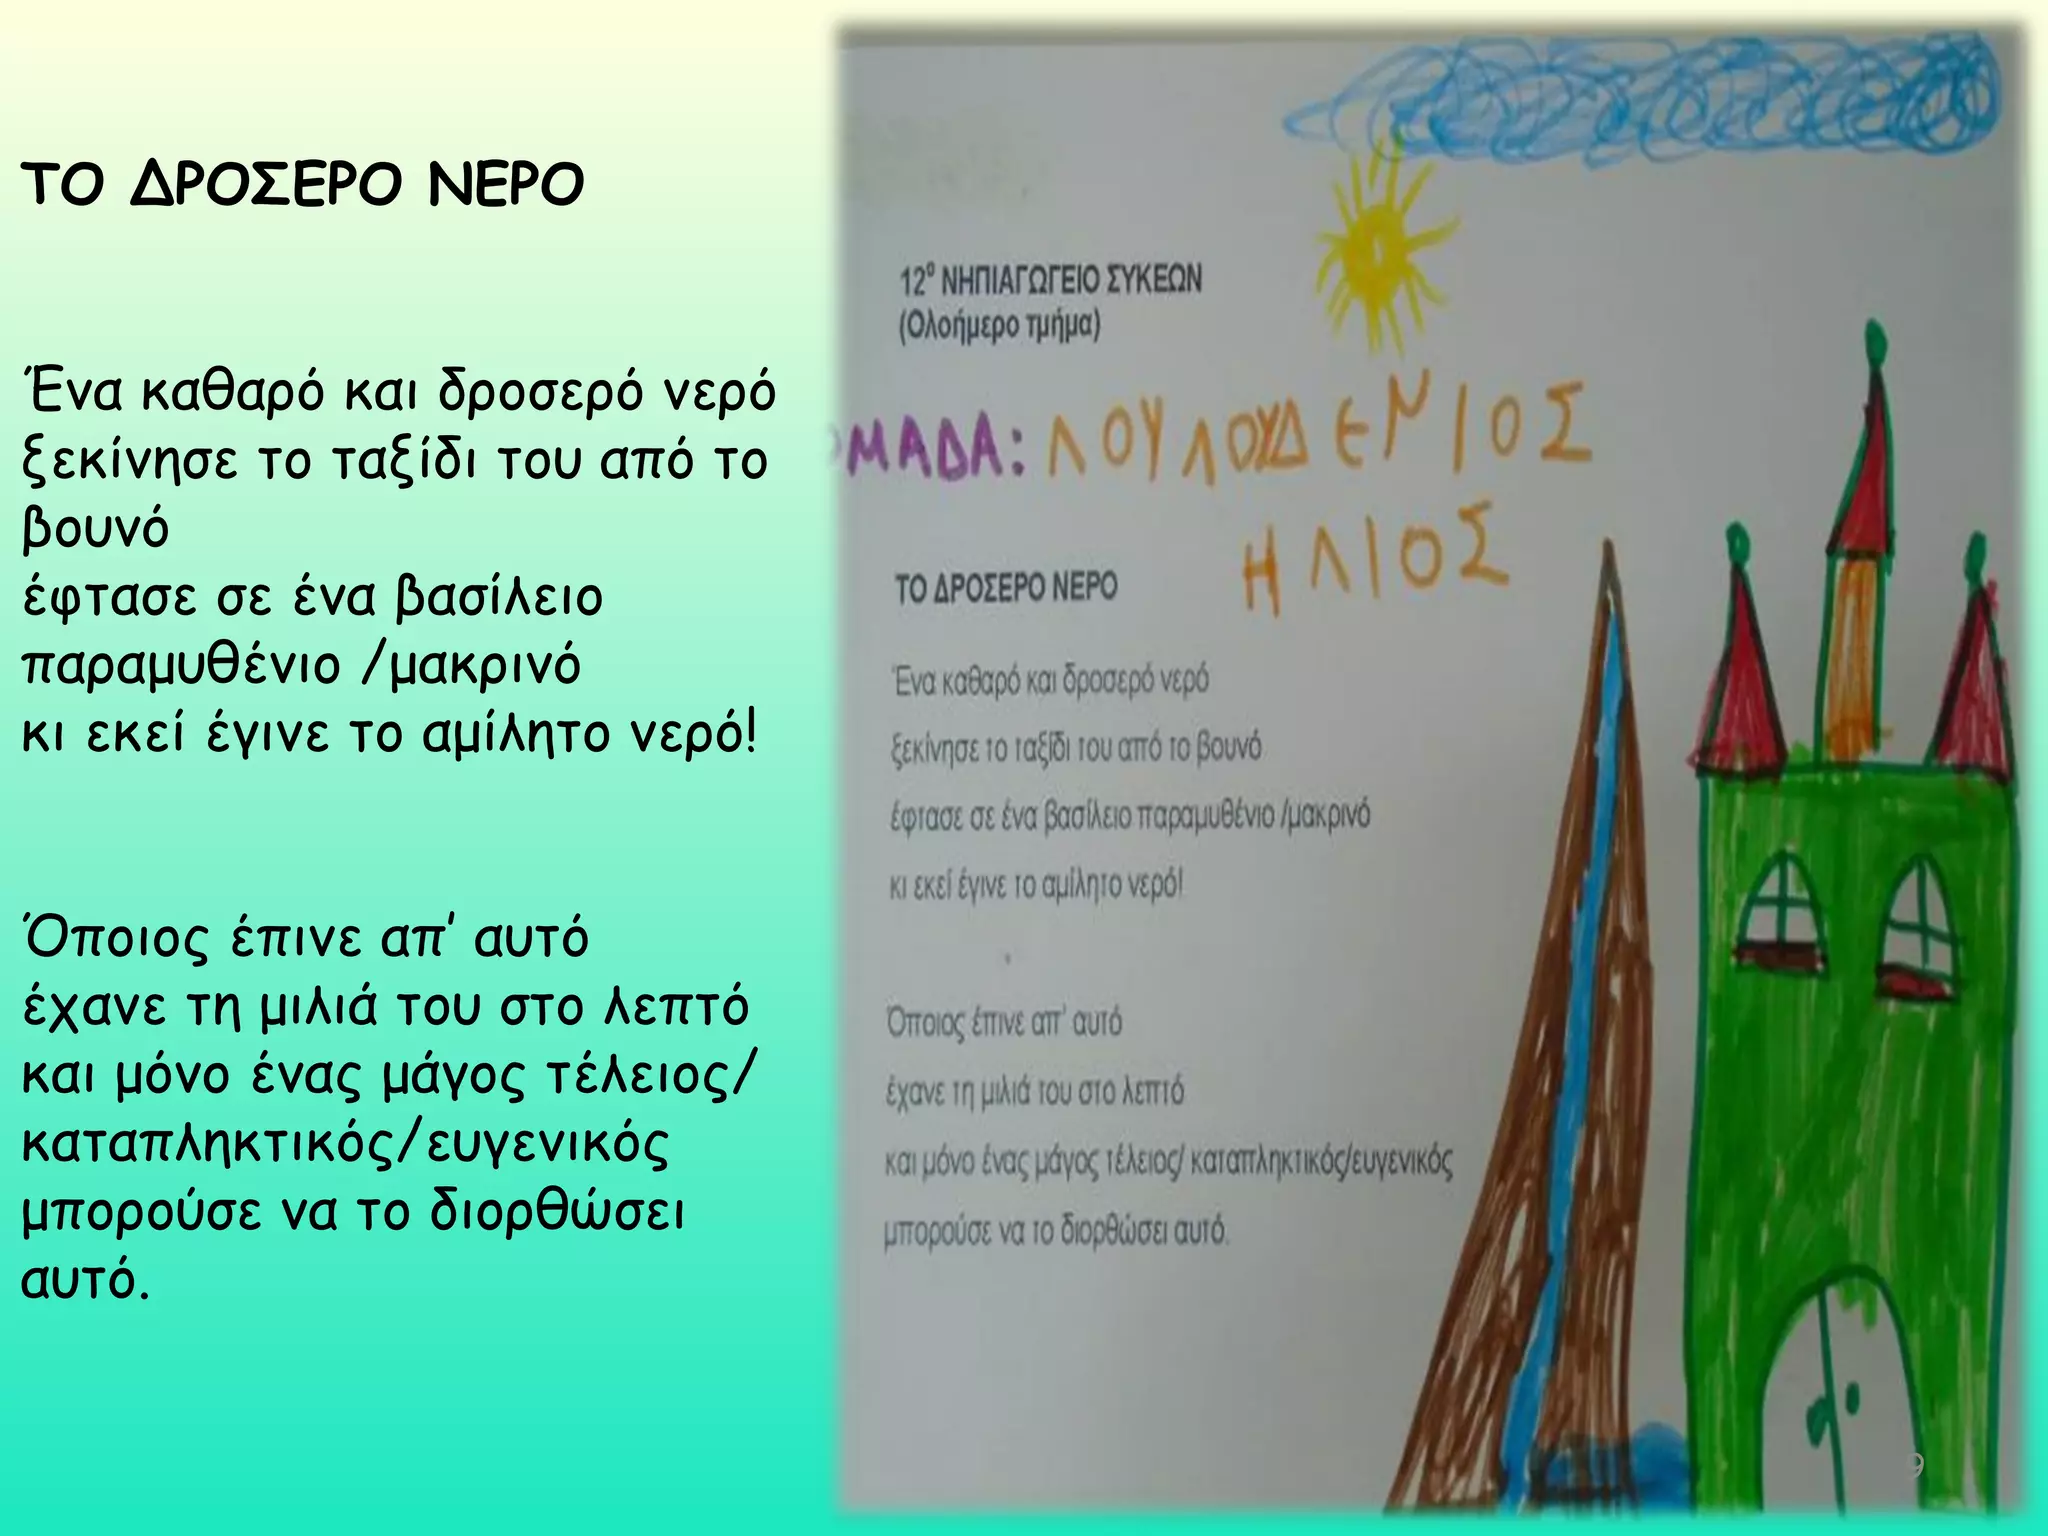 ΤΟ ΔΡΟΣΕΡΟ ΝΕΡΟ
Ένα καθαρό και δροσερό νερό
ξεκίνησε το ταξίδι του από το
βουνό
έφτασε σε ένα βασίλειο
παραμυθένιο /μακρινό
κι εκεί έγινε το αμίλητο νερό!
Όποιος έπινε απ’ αυτό
έχανε τη μιλιά του στο λεπτό
και μόνο ένας μάγος τέλειος/
καταπληκτικός/ευγενικός
μπορούσε να το διορθώσει
αυτό.
12⁰ ΝΗΠΙΑΓΩΓΕΙΟ ΣΥΚΕΩΝ
(Ολοήμερο τμήμα)
ΟΜΑΔΑ: ΛΟΥΛΟΥΔΕΝΙΟΣ
ΗΛΙΟΣ
ΤΟ ΔΡΟΣΕΡΟ ΝΕΡΟ
Ένα καθαρό και δροσερό νερό
ξεκίνησε το ταξίδι του από το βουνό
έφτασε σε ένα βασίλειο παραμυθένιο /μακρινό
κι εκεί έγινε το αμίλητο νερό!
Όποιος έπινε απ’ αυτό
έχανε τη μιλιά του στο λεπτό
και μόνο ένας μάγος τέλειος/ καταπληκτικός/ευγενικός
μπορούσε να το διορθώσει αυτό.
9